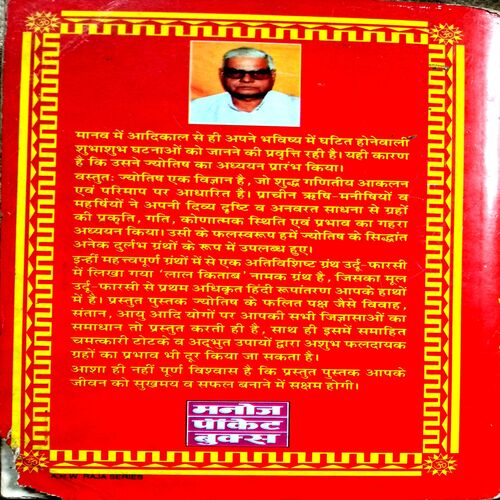 मानव में आदिकाल से ही अपने भविष्य में घटित होनेवाली
शुभाशुभ घटनाओं को जानने की प्रवृत्ति रही है। यही कारण
है कि उसने ज्योतिष का अध्ययन प्रारंभ किया।
वस्तुतः ज्योतिष एक विज्ञान है, जो शुद्ध गणितीय आकलन
एवं परिमाप पर आधारित है। प्राचीन ऋषि-मनीषियों व
महर्षियों ने अपनी दिव्य दृष्टि व अनवरत साधना से ग्रहों
की प्रकृति, गति, कोणात्मक स्थिति एवं प्रभाव का गहरा
अध्ययन किया। उसी के फलस्वरूप हमें ज्योतिष के सिद्धांत
अनेक दुर्लभ ग्रंथों के रूप में उपलब्ध हुए।
इन्हीं महत्त्वपूर्ण ग्रंथों में से एक अतिविशिष्ट ग्रंथ उर्दू-फारसी
में लिखा गया 'लाल किताब' नामक ग्रंथ है, जिसका मूल
उर्दू-फारसी से प्रथम अधिकृत हिंदी रूपांतरण आपके हाथों
में है। प्रस्तुत पुस्तक ज्योतिष के फलित पक्ष जैसे विवाह,
संतान, आयु आदि योगों पर आपकी सभी जिज्ञासाओं का
समाधान तो प्रस्तुत करती ही है, साथ ही इसमें समाहित
चमत्कारी टोटके व अद्भुत उपायों द्वारा अशुभ फलदायक
ग्रहों का प्रभाव भी दूर किया जा सकता है।
आशा ही नहीं पूर्ण विश्वास है कि प्रस्तुत पुस्तक आपके
जीवन को सुखमय व सफल बनाने में सक्षम होगी।
मनोज
पॉकेट
बुक्स
A.H.W. RAJA SERIES